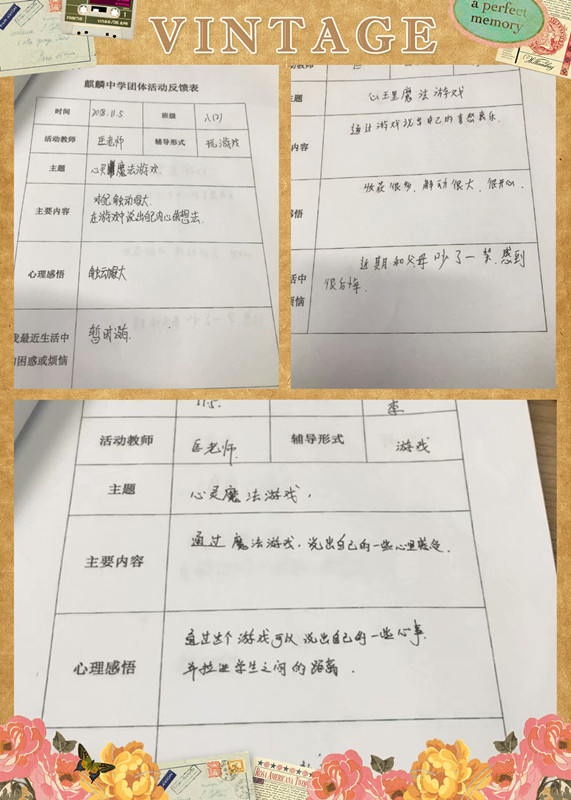 VINTAGE
a perfect
memory
麒麟中学团体活动反馈表
时间 2018.11.5 班级 八(2)
活动教师 匡老师 辅导形式 玩游戏
主题 心灵魔法游戏
主要内容 对己触动很大
在游戏中说出自己内心的想法
心理感悟 触动很大
我最近生活中
的困惑或烦恼
暂时没有
动教师 匡老师 辅导形式
题 心灵魔法游戏
内容 通过游戏说出自己的喜怒哀乐
感悟 收获很多,触动很大,很开心
活中 近期和父母吵了一架,感到
烦恼 很后悔
活动教师 匡老师 辅导形式 游戏
主题 心灵魔法游戏.
主要内容 通过魔法游戏,说出自己的一些心里
心理感悟 通过这个游戏可以说出自己的一些心事
并拉近学生之间的距离.
ROSA AMERICANA